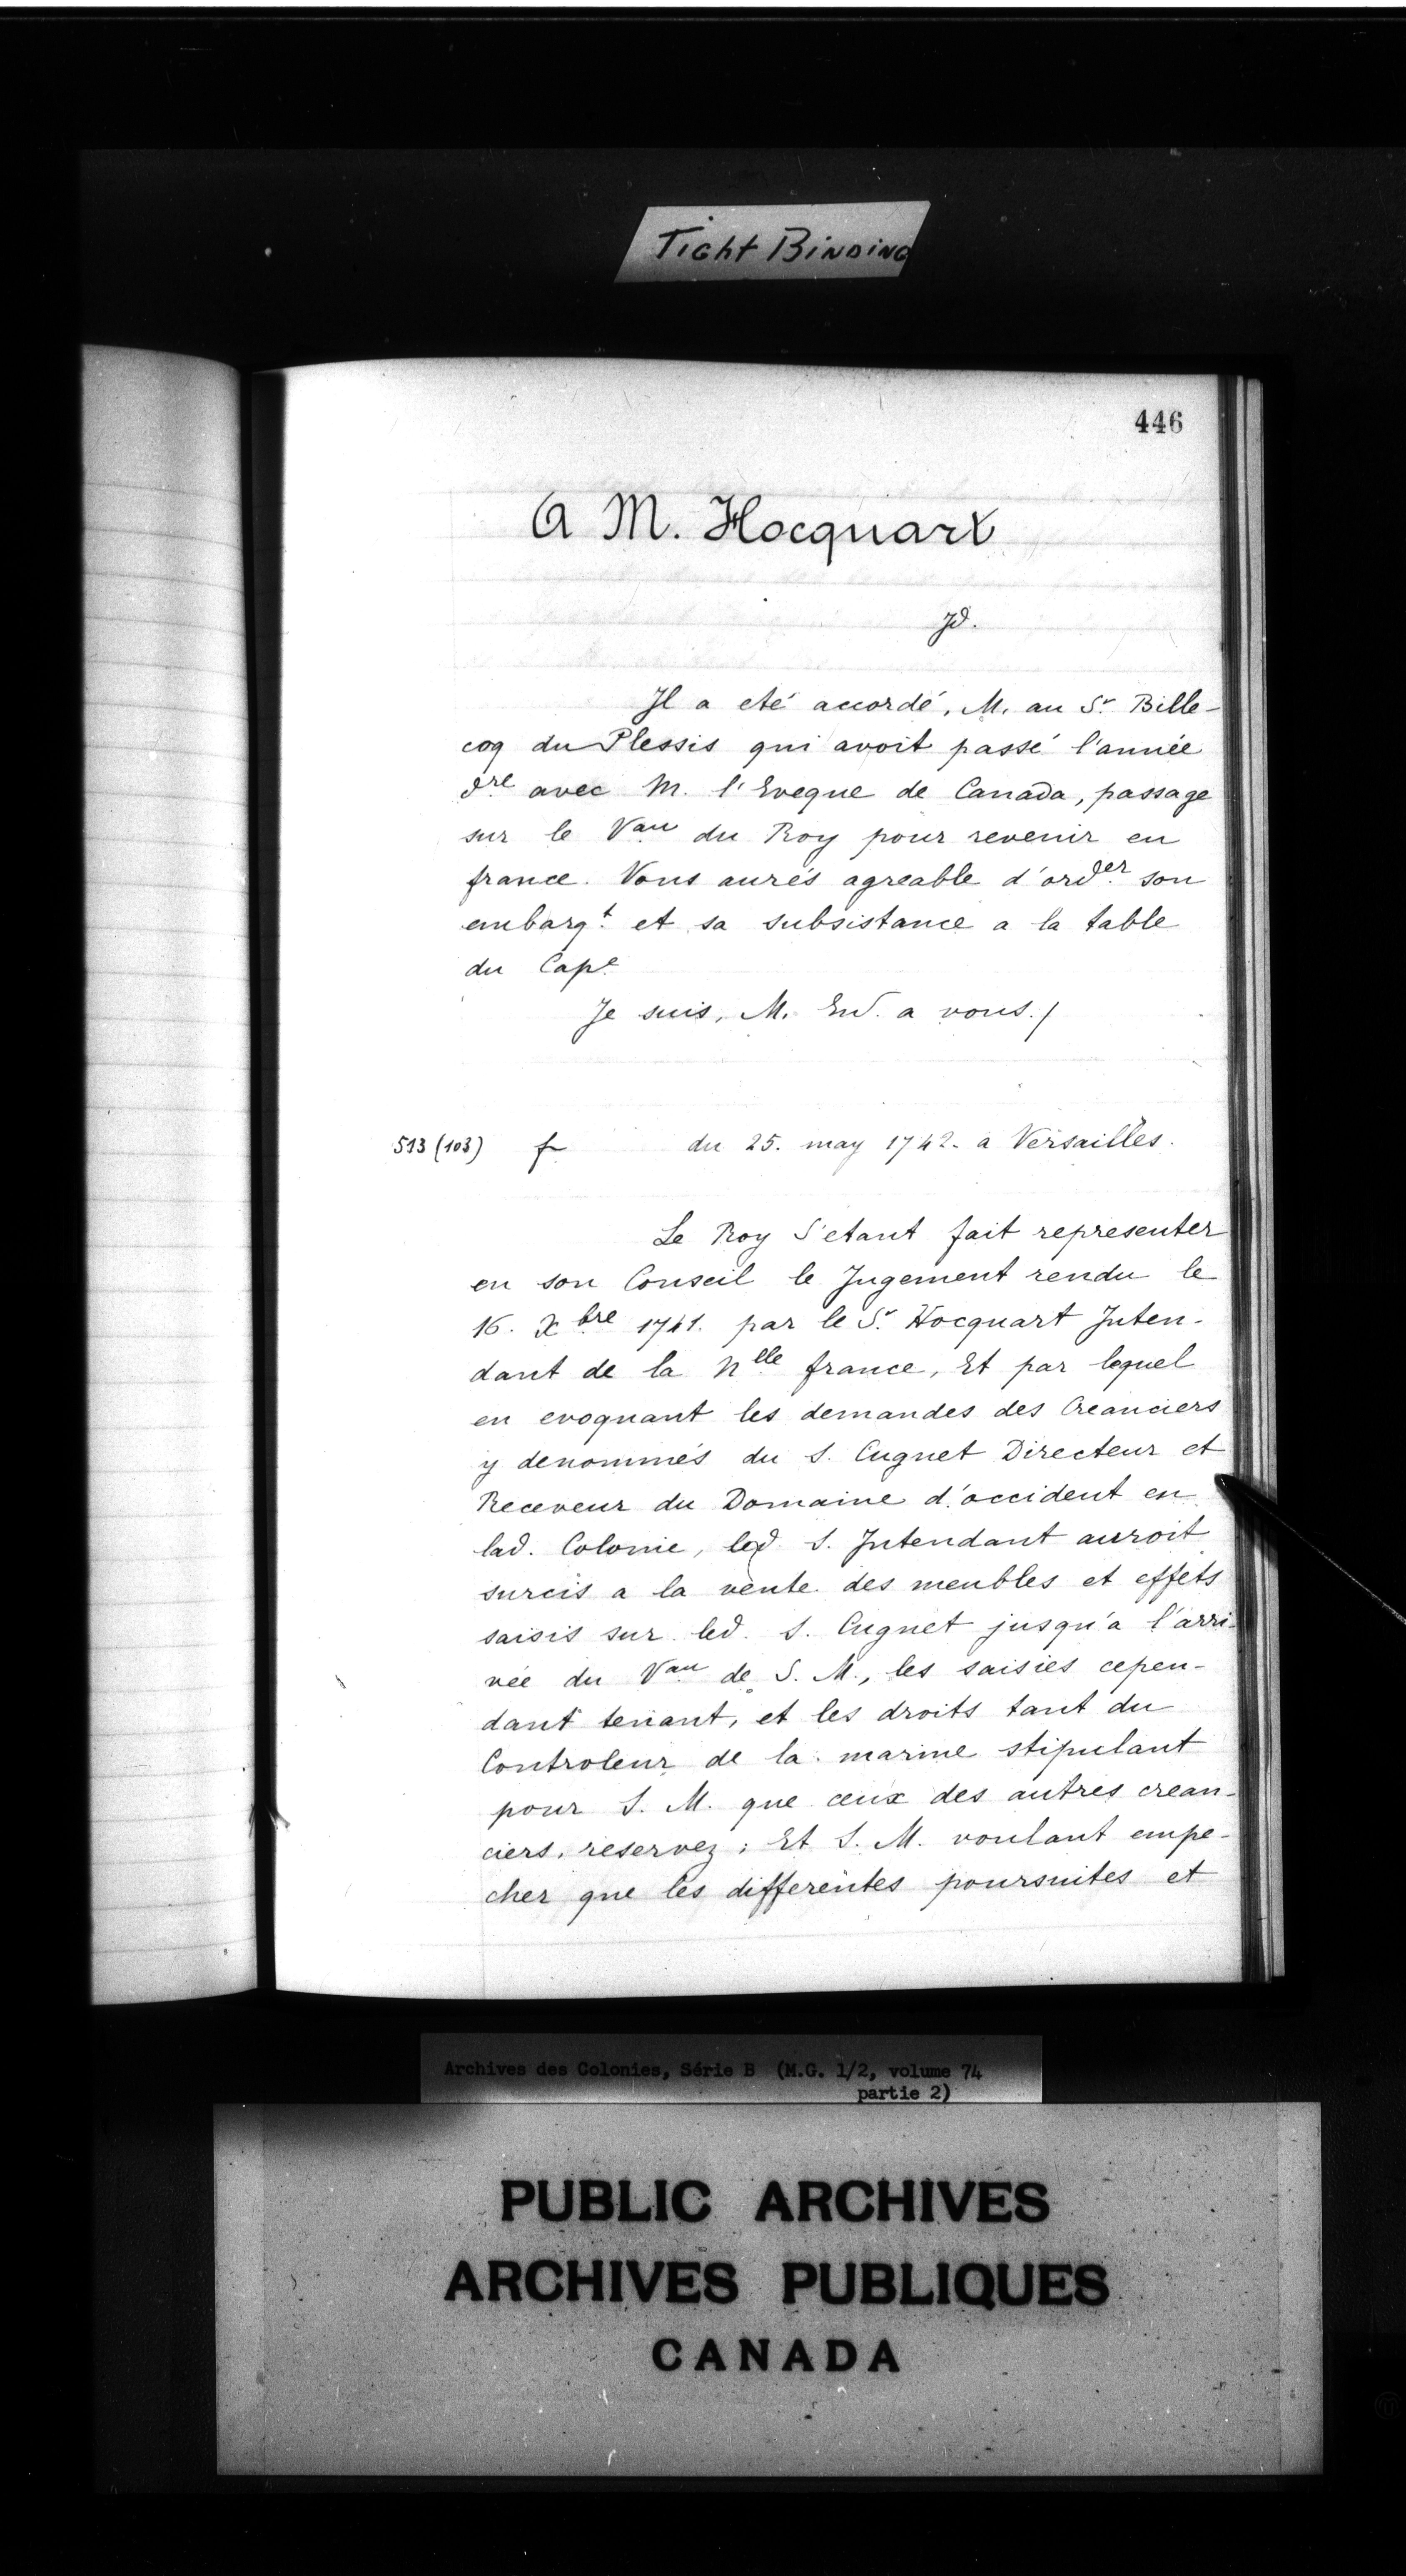 Tight Binding
446
A M. Hocquart
Jd.
Il a eté accordé, M. au Sr. Bille-
coq du Plessis qui avoit passé l'année
dre avec M. l'Eveque de Canada, passage
sur le Vau du Roy pour revenir en
france. Vous aurés agreable d'order. son
embarqt. et sa subsistance a la table
du Cape.
Je suis, M. Ent. a vous./
513 (103) f du 25. may 1742. a Versailles.
Le Roy S'etant fait representer
en son Conseil le Jugement rendu le
16. Xbre 1741. par le Sr. Hocquart Inten-
dant de la Nlle france, Et par lequel
en evoquant les demandes des Creanciers
y denommés du S. Cugnet Directeur et
Receveur du Domaine d'occident en
lad. Colonie, led. S. Intendant auroit
surcis a la vente des meubles et effets
saisis sur led. S. Cugnet jusqu'a l'arri-
vée du Vau de S. M., les saisies cepen-
dant tenant, et les droits tant du
Controleur de la marine stipulant
pour S. M. que ceux des autres crean-
ciers, reservez; Et S. M. voulant empe-
cher que les differentes poursuites et
Archives des Colonies, Série B (M.G. 1/2, volume 74
partie 2)
PUBLIC ARCHIVES
ARCHIVES PUBLIQUES
CANADA